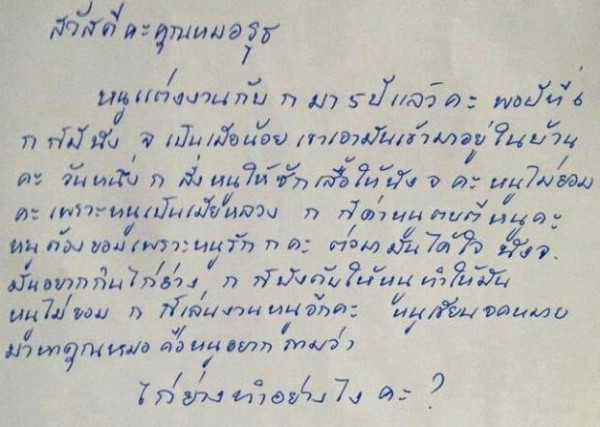 สวัสดีคะคุณหมอรุธ
หนูแต่งงานกับ ก มา 5 ปีแล้วคะ พอปีที่ 6
ก ก็มีนัง จ เป็นเมียน้อย เขาเอามันเข้ามาอยู่ในบ้าน
คะ วันหนึ่ง ก สั่งหนูให้ซักเสื้อให้นัง จ คะ หนูไม่ยอม
คะเพราะหนูเป็นเมียหลวง ก ก็ด่าหนูตบตีหนูคะ
หนูต้องยอมเพราะหนูรัก ก คะ ต่อมามันได้ใจ นังจ.
มันอยากกินไก่ย่าง ก ก็บังคับให้หนูทำให้มัน
หนูไม่ยอม ก ก็เล่นงานหนูอีกคะ หนูเขียนจดหมาย
มาหาคุณหมอ คือหนูอยากถามว่า
ไก่ย่างทำอย่างไง คะ?